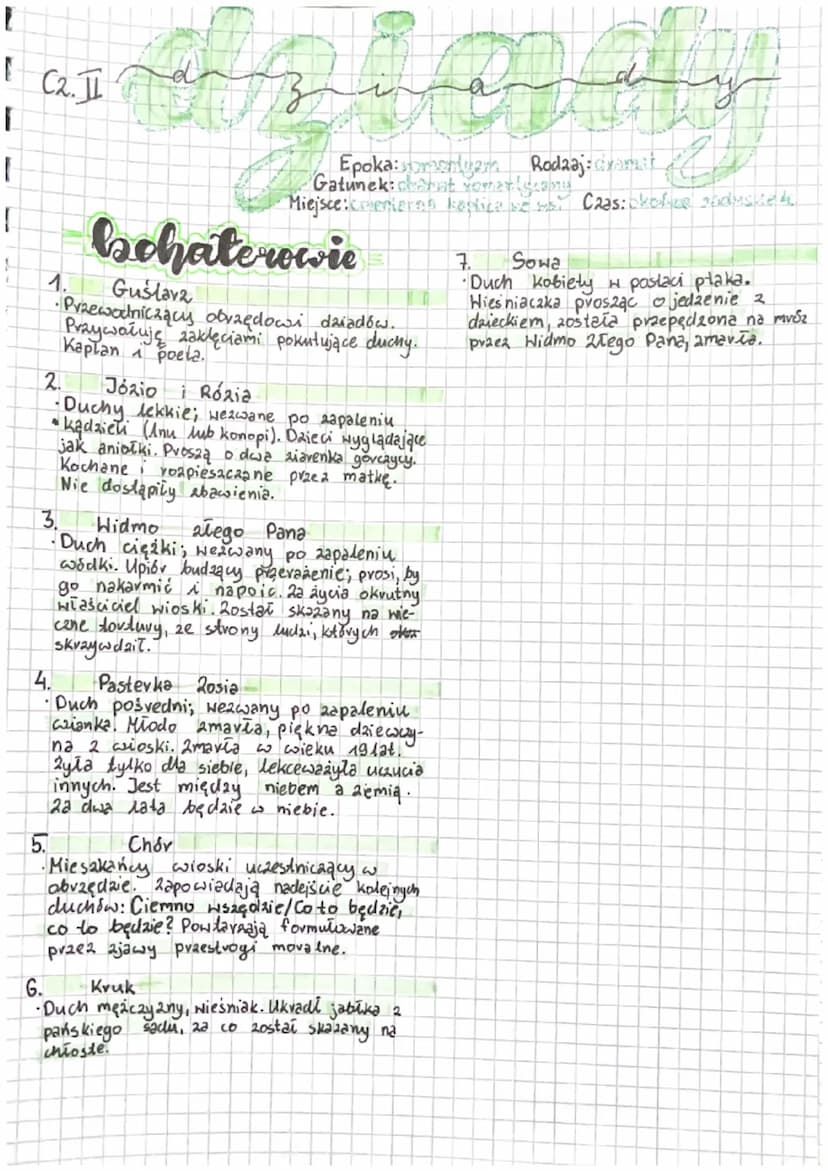 Cz. II dziady
dziady
Epoka: romantyzm Rodzaj: dramat
Gatunek: dramat romantyczny
Miejsce: cmentarna kaplica we wsi Czas: okolice zaduszek
bohaterowie
1. Guślarz
·Przewodniczący obrzędowi dziadów.
Przywołuje zaklęciami pokutujące duchy.
Kapłan i poeta.
2. Józio i Rózia
·Duchy lekkie; wezwane po zapaleniu
•kądzieli (lnu lub konopi). Dzieci wyglądające
jak aniołki. Proszą o dwa ziarenka gorczycy.
Kochane i rozpieszczane przez matkę.
Nie dostąpiły zbawienia.
3. Widmo złego Pana
·Duch ciężki; wezwany po zapaleniu
wódki. Upiór budzący przerażenie; prosi, by
go nakarmić i napoić. Za życia okrutny
właściciel wioski. Został skazany na wie-
czne tortury, ze strony ludzi, których
skrzywdził.
4. Pasterka Zosia
·Duch pośredni; wezwany po zapaleniu
wianka. Młodo zmarła, piękna dziewczy-
na z wioski. Zmarła w wieku 19 lat.
Żyła tylko dla siebie, lekceważyła uczucia
innych. Jest między niebem a ziemią.
Za dwa lata będzie w niebie.
5. Chór
·Mieszkańcy wioski uczestniczący w
obrzędzie. Zapowiadają nadejście kolejnych
duchów: Ciemno wszędzie/Co to będzie,
co to będzie? Powtarzają formułowane
przez zjawy przestrogi moralne.
6. Kruk
·Duch mężczyzny, wieśniak. Ukradł jabłka z
pańskiego sadu, za co został skazany na
chłostę.
7. Sowa
·Duch kobiety w postaci ptaka.
Wieśniaczka prosząc o jedzenie z
dzieckiem, została przepędzona na mróz
przez Widmo Złego Pana, zmarła.